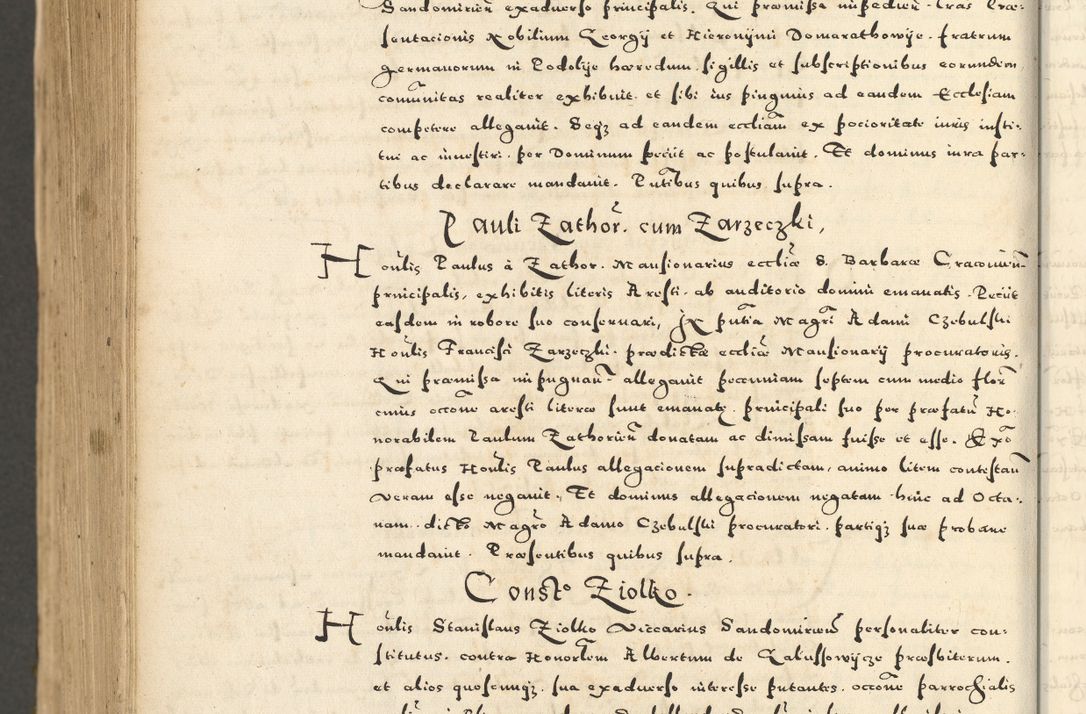 Sandomirien̄ exaduerso principalis. Qui præmissa impedien̄ Lras Præ-
sentacionis Nobilium Georgij et Hieronÿmi Domarathowije. fratrum
germanorum in Podolije hæredum, sigillis et subscriptionibus eorundem
com̄unitas realiter exhibuit. et sibi ius pinguius ad eandem Ecclesiam
competere allegauit. Seqз ad eandem eccliam̄ ex pocioritate iuris insti-
tui ac inuestiri. per Dominum peciit ac postulauit. Et dominus iura par-
tibus declarare mandauit. Pn̄tibus quibus supra.
Pauli Zathor̄. cum Zarzeczki,
Hon̄lis Paulus à Zathor. Mansionarius ecclīæ S. Barbaræ Cracouien̄
principalis, exhibitis literis Aresti. ab auditorio domini emanatis. Peciit
easdem in robore suo conseruari, In pn̄tia Magr̄i Adami Czebulski
Hon̄lis Francisci Zarzeczki. prædictæ ecclīæ Mansionarij procuratoris.
Qui præmissa impugnan̄ allegauit pecuniam septem cum medio flor̄
cuius occōne aresti literæ sunt emanatæ. principali suo per præfatū Ho-
norabilem Paulum Zathorien̄ donatam ac dimissam fuisse et esse. Ex o͞
præfatus Hon̄lis Paulus allegacionem supradictam, animo litem contestan̄
veram esse negauit. Et dominus allegacionem negatam hinc ad Octa-
nam. dicto Magr̄o Adamo Czebulski procuratori. partiqз suæ probare
mandauit. Præsentibus quibus supra.
Consto Ziolko.
Hon̄lis Stanislaus Ziolko Viccarius Sandomirien̄ personaliter con-
stitutus. contra Honorlem̄ Albertum de Galussowijcze præsbiterum.
et alios quoscunqз. sua exaduerso interesse putantes. occōne parrochialis